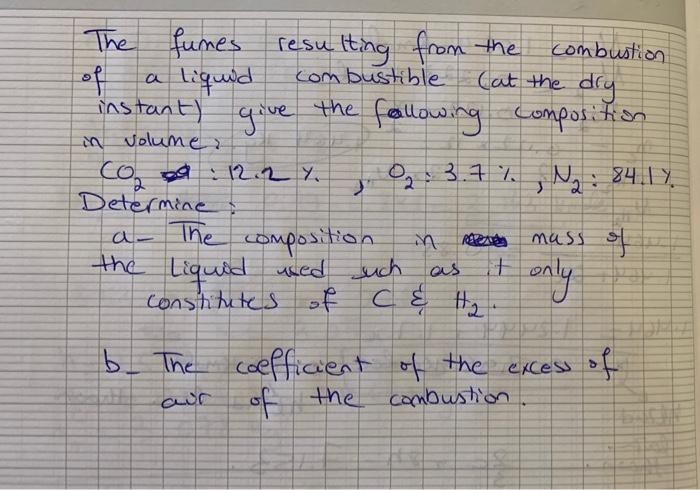 The fumes resulting from the combustion
of a liquid combustible (at the dry
instant) give the following composition
in volume:
CO2 : 12.2 %, O2 : 3.7 %, N2 : 84.1 %
Determine :
a- The composition in mass of
the liquid used such as it only
constitutes of C & H2.
b- The coefficient of the excess of
air of the combustion.